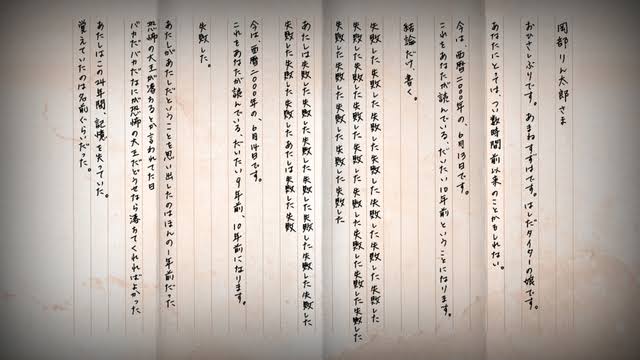 岡部りん太郎さま
おひさしぶりです。あまねすずはです。はしだタイターの娘です。
あなたにとっては、つい数時間前以来のことかもしれない。
今は、西暦二000年の、6月13日です。
これをあなたが読んでいる、だいたい10年前ということになります。
結論だけ、書く。
失敗した失敗した失敗した失敗した失敗した失敗した失敗した失敗した
失敗した失敗した失敗した失敗した失敗した失敗した失敗した失敗した
失敗した失敗した失敗した失敗した失敗した
あたしは失敗した失敗した失敗した失敗した失敗した失敗した失敗した
失敗した失敗した失敗したあたしは失敗した失敗
今は、西暦二000年の、6月14日です。
これをあなたが読んでいる、だいたい9年前、10年前になります。
失敗した。
あたしがあたしだということを思い出したのはほんの一年前だった
恐怖の大王が落ちるとか言われてた日
バカだバカだなにが恐怖の大王だどうせなら落ちてくれればよかった
あたしはこの24年間、記憶を失っていた。
覚えていたのは名前ぐらいだった。